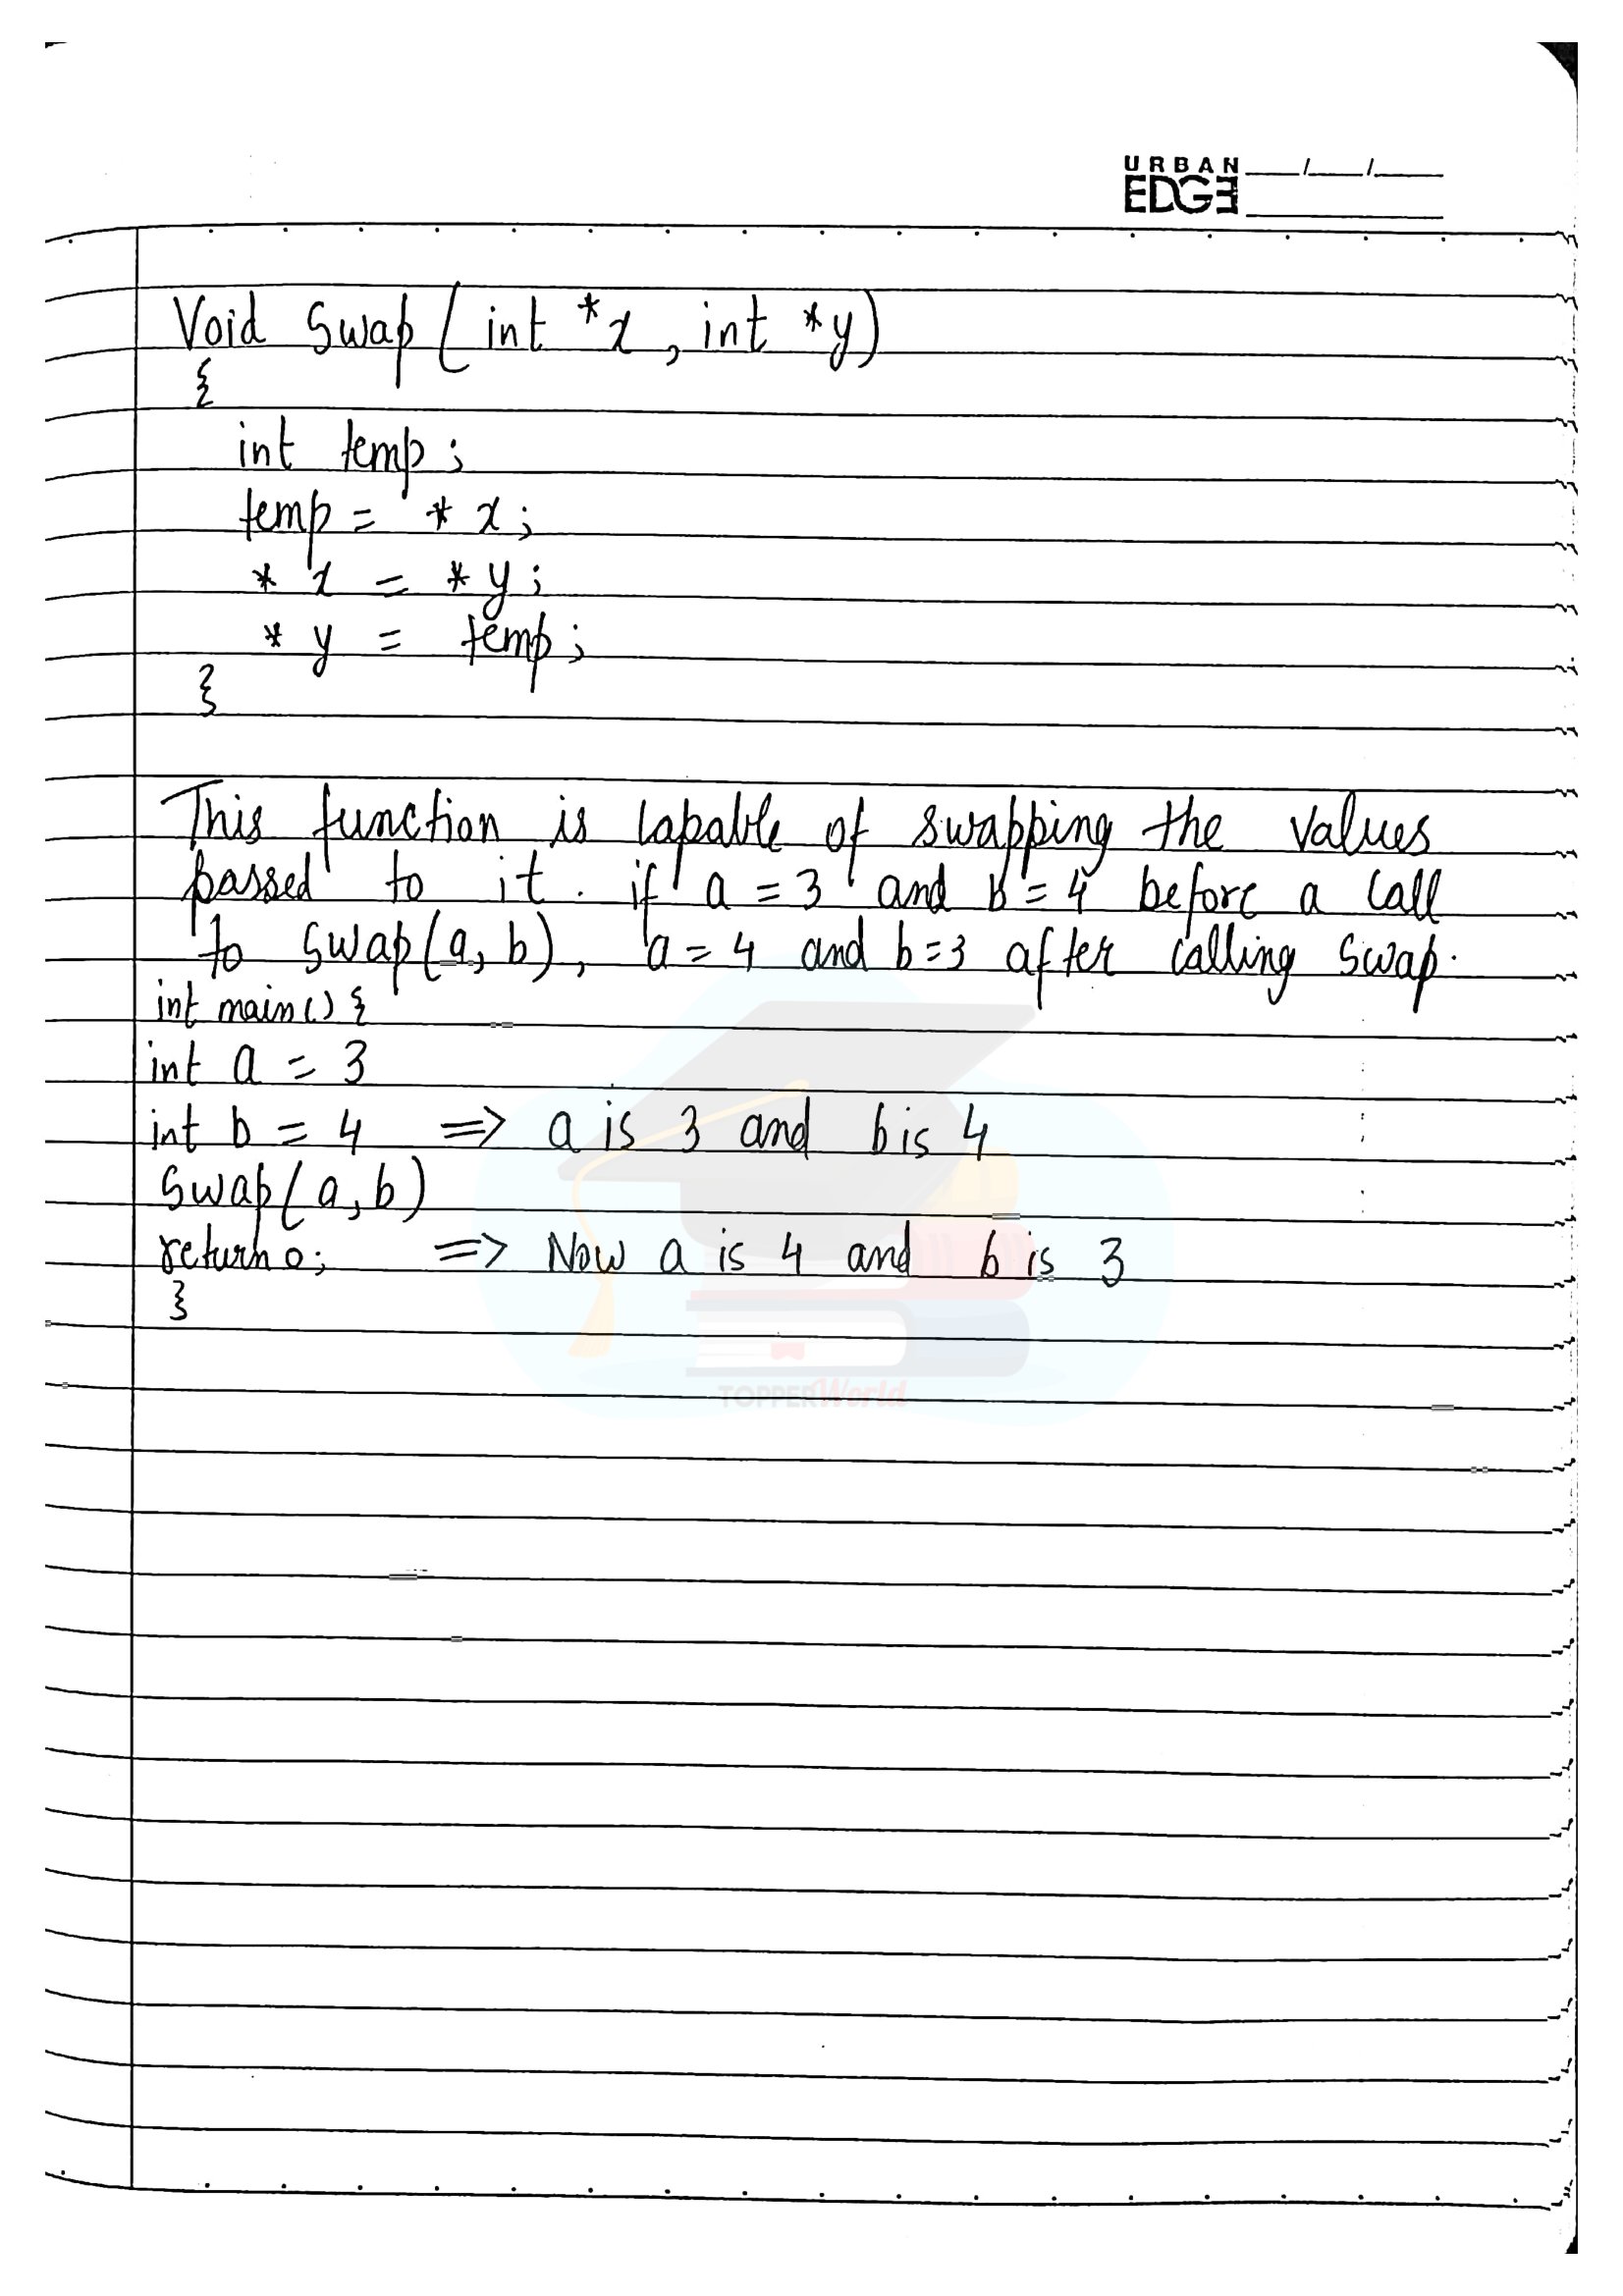 URBAN
EDGE
Void Swap ( int *x , int *y)
{
int temp ;
temp = * x ;
* x = * y ;
* y = temp ;
}
This function is capable of swapping the values
passed to it . if a = 3 and b = 4 before a call
to swap(a, b) , a = 4 and b = 3 after calling swap.
int main() {
int a = 3
int b = 4 => a is 3 and b is 4
Swap(a, b)
return 0; => Now a is 4 and b is 3
}
TOPPERWorld